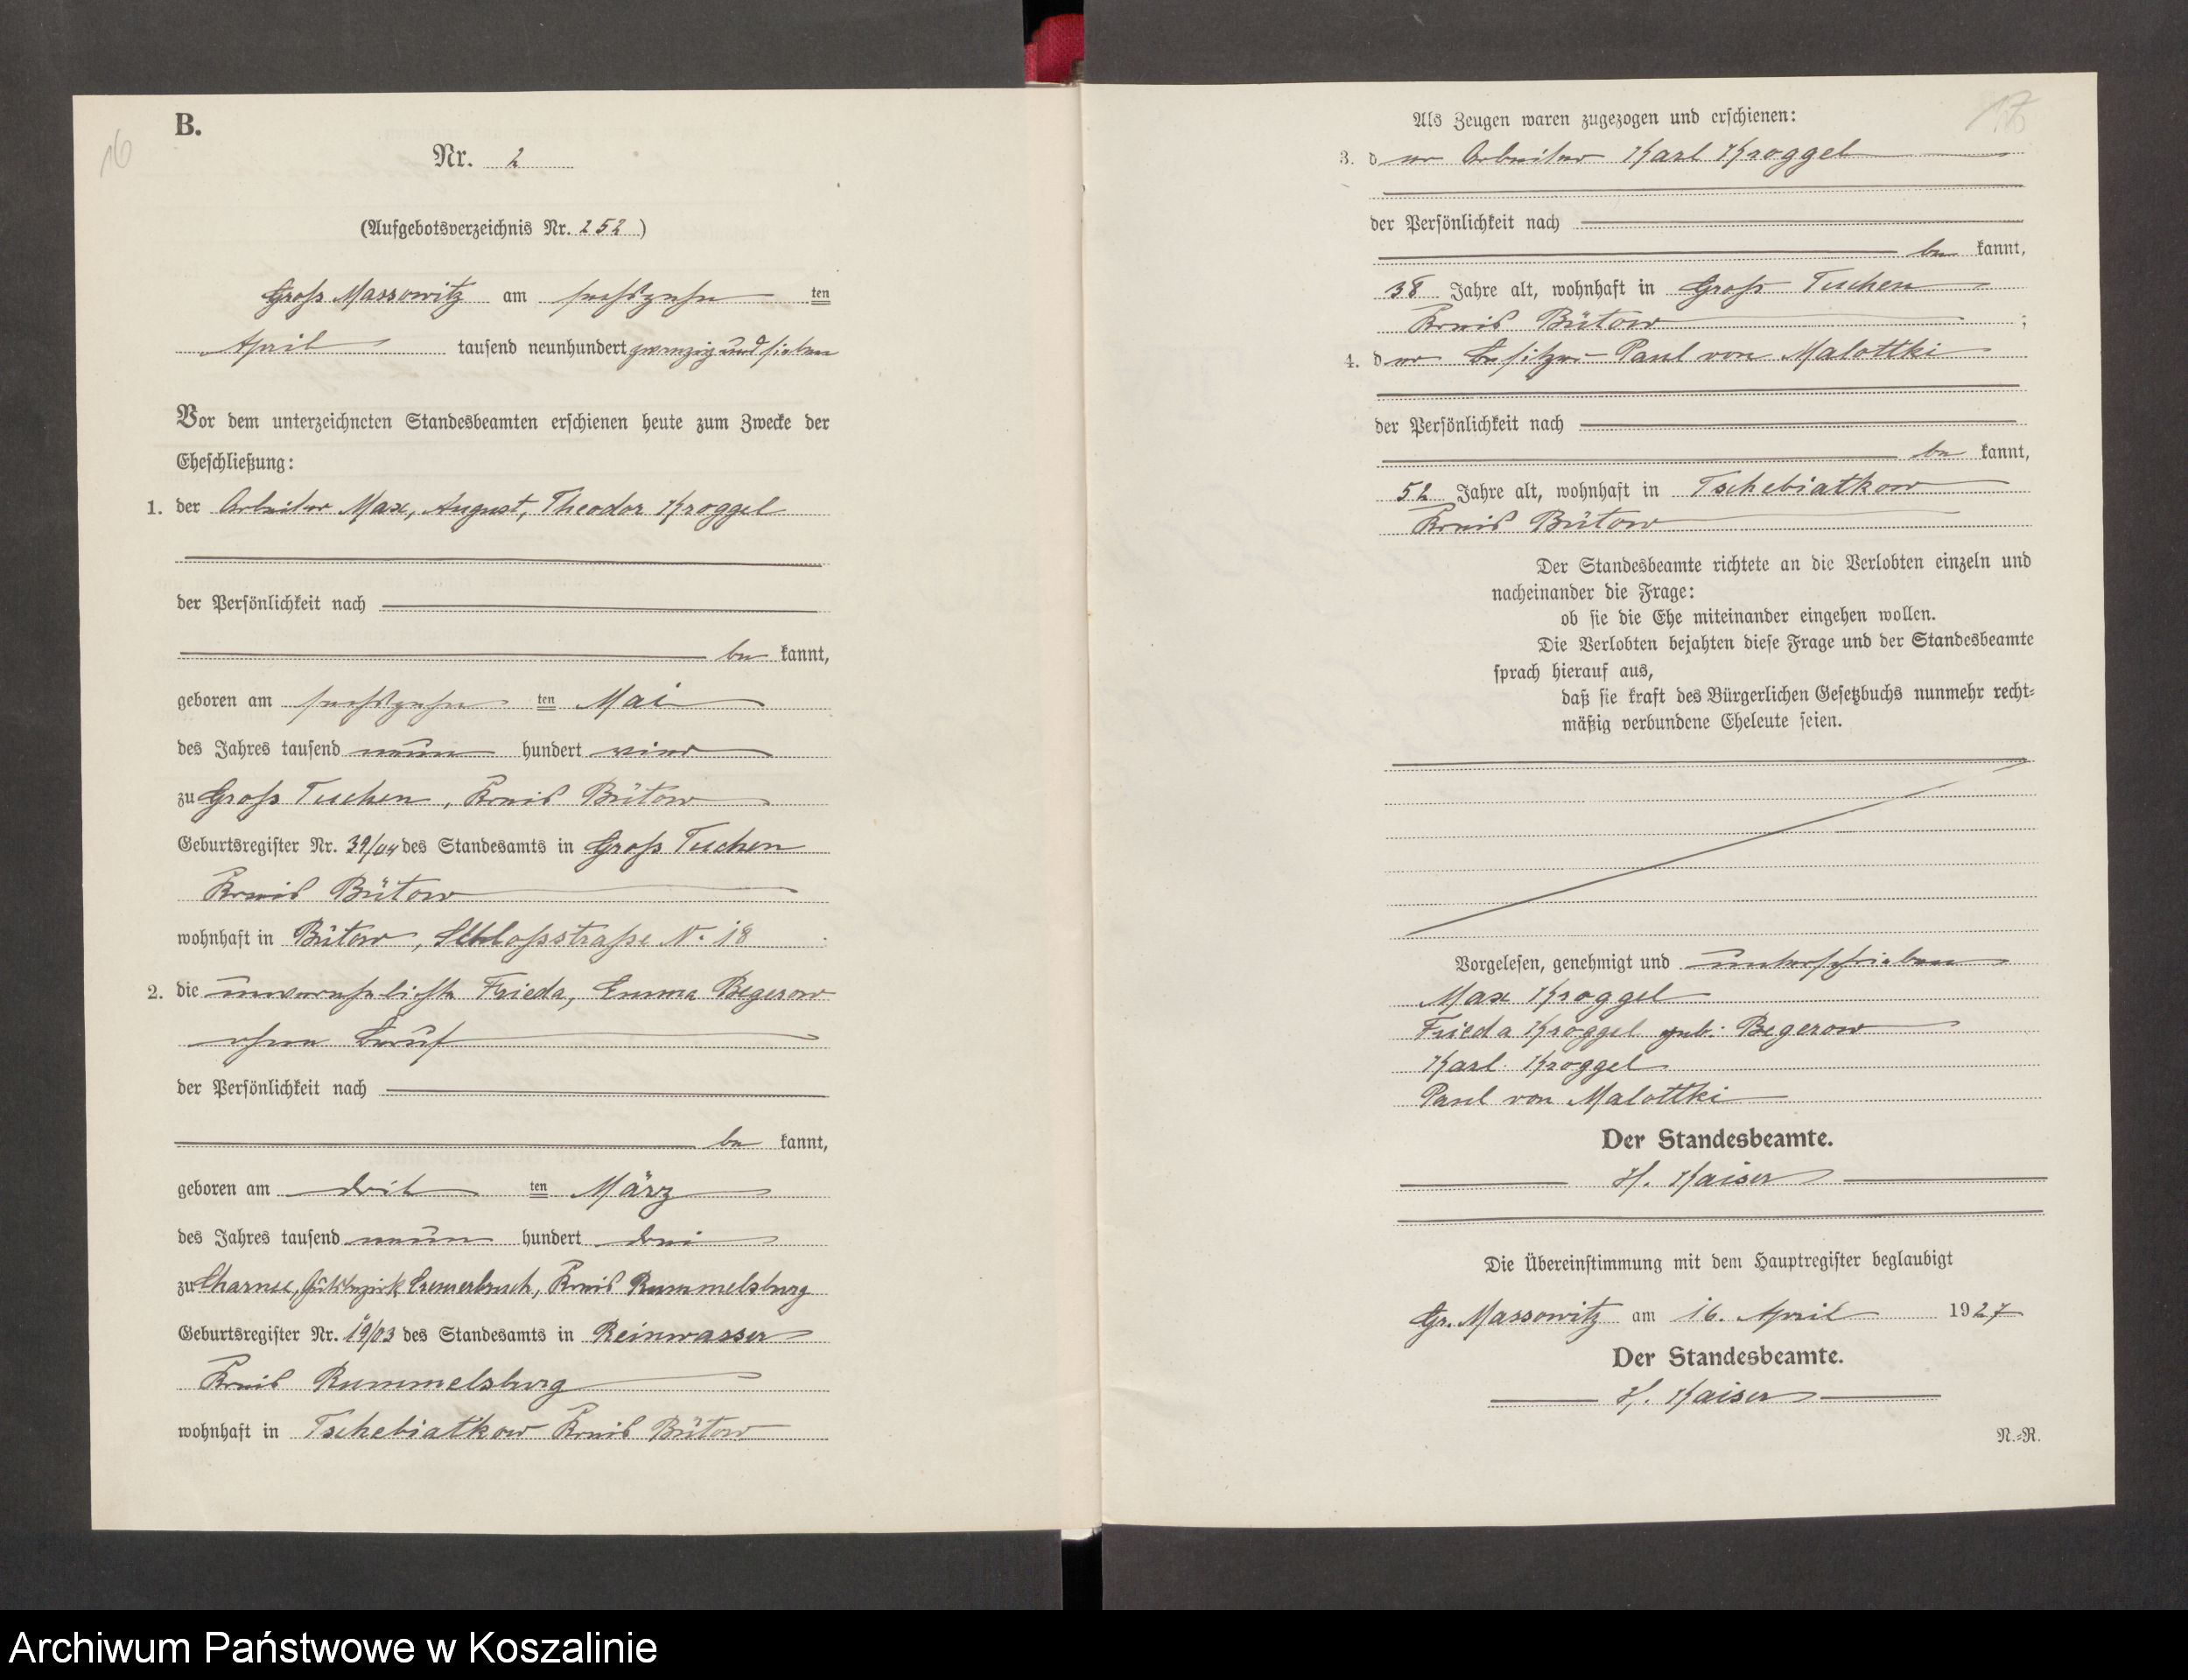 16
B.
Nr. 2
(Aufgebotsverzeichnis Nr. 252)
Groß Massowitz am sechszehn ten
April tausend neunhundert zwanzig und sieben
Vor dem unterzeichneten Standesbeamten erschienen heute zum Zwecke der
Eheschließung:
1. der Arbeiter Max, August, Theodor Kroggel
der Persönlichkeit nach
be kannt,
geboren am sechszehn ten Mai
des Jahres tausend neun hundert vier
zu Groß Tuchen, Kreis Bütow
Geburtsregister Nr. 39/04 des Standesamts in Groß Tuchen
Kreis Bütow
wohnhaft in Bütow, Schloßstraße N. 18
2. die unverehelichte Frieda, Emma Begerow
ohne Beruf
der Persönlichkeit nach
be kannt,
geboren am drit ten März
des Jahres tausend neun hundert drei
zu Charnee, Gutsbezirk Cremerbruch, Kreis Rummelsburg
Geburtsregister Nr. 19/03 des Standesamts in Reinwasser
Kreis Rummelsburg
wohnhaft in Tschebiatkow Kreis Bütow
17
Als Zeugen waren zugezogen und erschienen:
3. der Arbeiter Karl Kroggel
der Persönlichkeit nach
be kannt,
38 Jahre alt, wohnhaft in Groß Tuchen
Kreis Bütow ;
4. der Besitzer Paul von Malottki
der Persönlichkeit nach
be kannt,
52 Jahre alt, wohnhaft in Tschebiatkow
Kreis Bütow
Der Standesbeamte richtete an die Verlobten einzeln und
nacheinander die Frage:
ob sie die Ehe miteinander eingehen wollen.
Die Verlobten bejahten diese Frage und der Standesbeamte
sprach hierauf aus,
daß sie kraft des Bürgerlichen Gesetzbuchs nunmehr recht-
mäßig verbundene Eheleute seien.
Vorgelesen, genehmigt und unterschrieben
Max Kroggel
Frieda Kroggel geb. Begerow
Karl Kroggel
Paul von Malottki
Der Standesbeamte.
H. Kaiser
Die Übereinstimmung mit dem Hauptregister beglaubigt
Gr. Massowitz am 16. April 1927
Der Standesbeamte.
H. Kaiser
N.-R.
Archiwum Państwowe w Koszalinie